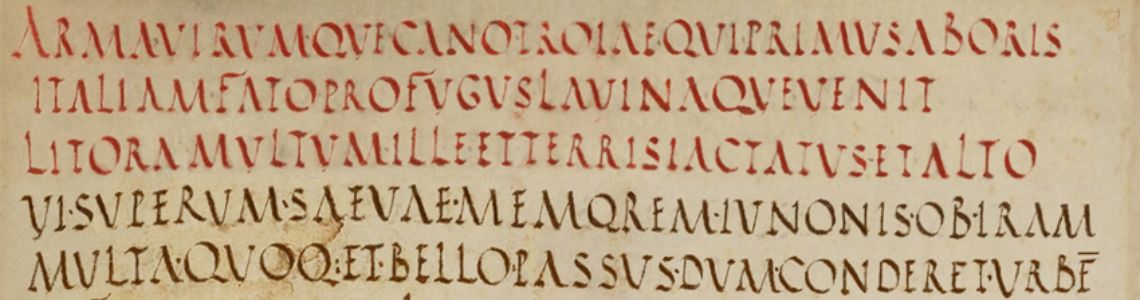 ARMA·VIRVMQVECANOTROIAE·QVI·PRIMVSABORIS
ITALIAM·FATO·PROFVGVSLAVINAQVEVENIT
LITORAMVLTVMILLE·ETTERRISIACTATVS·ETALTO
VI·SVPERVM·SAEVAE·MEMOREM·IVNONIS·OB·IRAM
MVLTA·QVOQ:ET·BELLO·PASSVS·DVM·CONDERET·VRBE̅